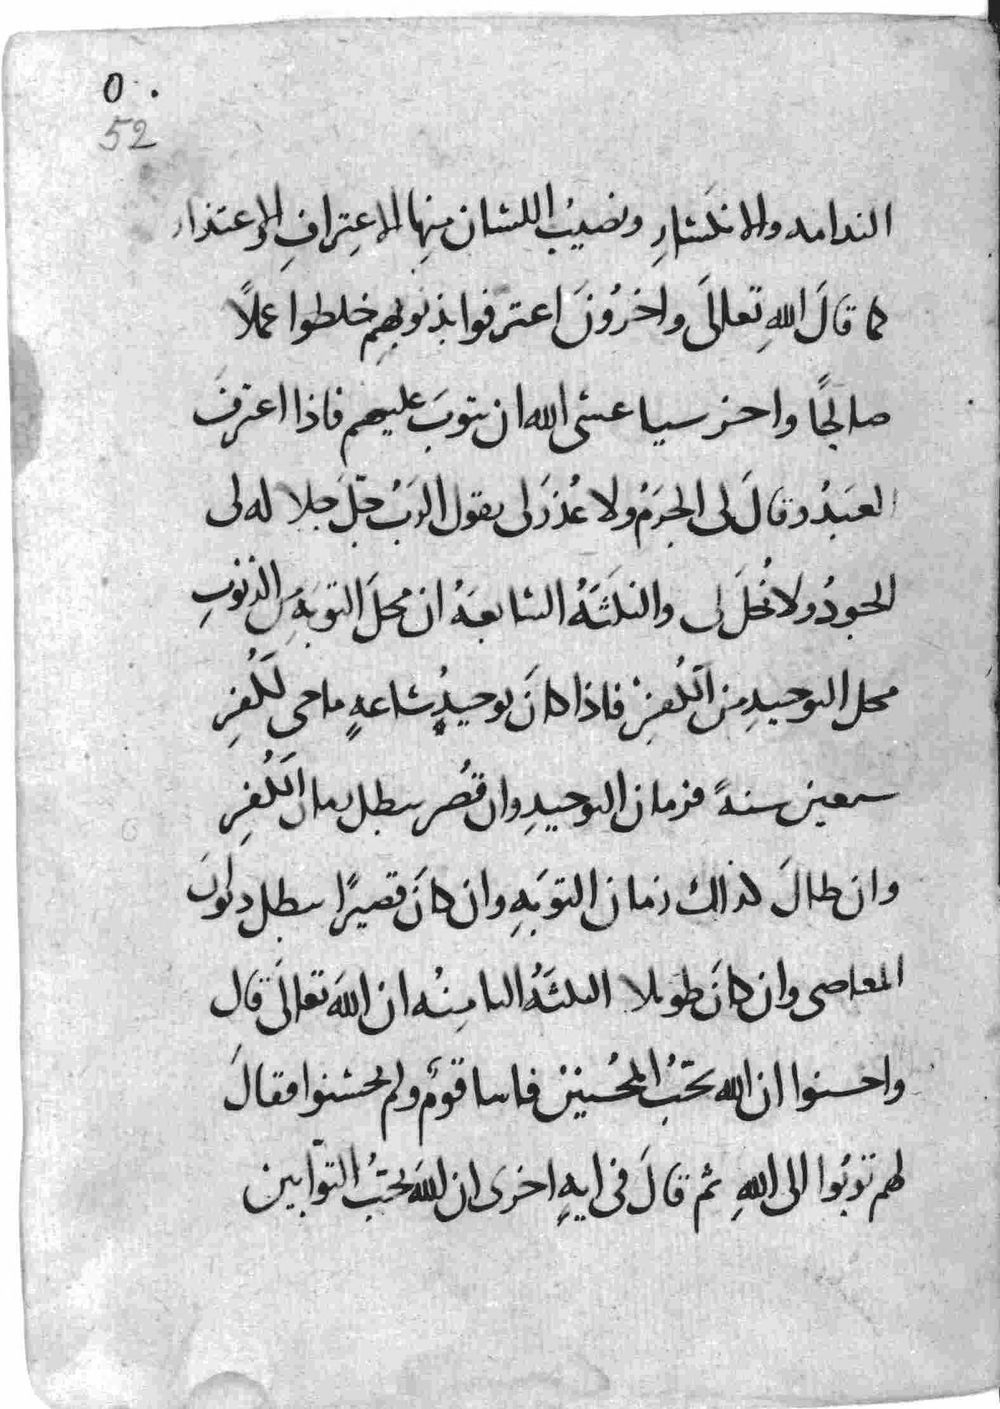 ٥٠
52
الندامه والانكسارِ ونصيبُ اللسان منها الاعترافِ والاعتذار
كما قالَ اللهِ تعالىَ واخرُونَ اعترفوا بذنوبهم خلطوا عملاً
صالحًا واخر سيا عسى الله ان يتوبَ عليهم فاذا اعترفَ
العبدُ وقالَ لى الجرمُ ولا عُذرَ لى يقول الربُ جلّ جلاله لى
الجودُ ولا بُخلَ لى والنكتَةُ السابعةُ ان محلَ التوبَةِ من الذنوبِ
محل التوحيدِ من الكُفرِ فاذا كانَ توحيدُ ساعةٍ ماحى لكُفرِ
سبعين سنةً فزمان التوحيدِ وان قصُر يبطل زمان الكُفرِ
وان طالَ كذالك زمان التوبَهِ وان كانَ قصيرًا يبطل
المعاصى وان كانَ طويلا النكتَةُ الثامنُه ان اللهَ تعالىَ قال
واحسنوا ان الله يحبُ المحُسنين فاسا قومٌ ولم يحسنوا فقالَ
لهم توبُوا الى اللهِ ثم قالَ فى ايهٍ اخرى ان اللهَ يحبُّ التوّابين